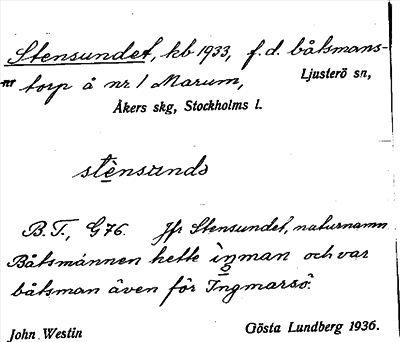 Stensundet, kb 1933, f.d. båtsmans-
torp å nr 1 Marum, Ljusterö sn,
Åkers skg, Stockholms l.
stènsundə
B.T., G76. Jfr Stensundet, naturnamn
Båtsmännen hette ìŋman och var
båtsman även för Ingmarsö.
John Westin Gösta Lundberg 1936.